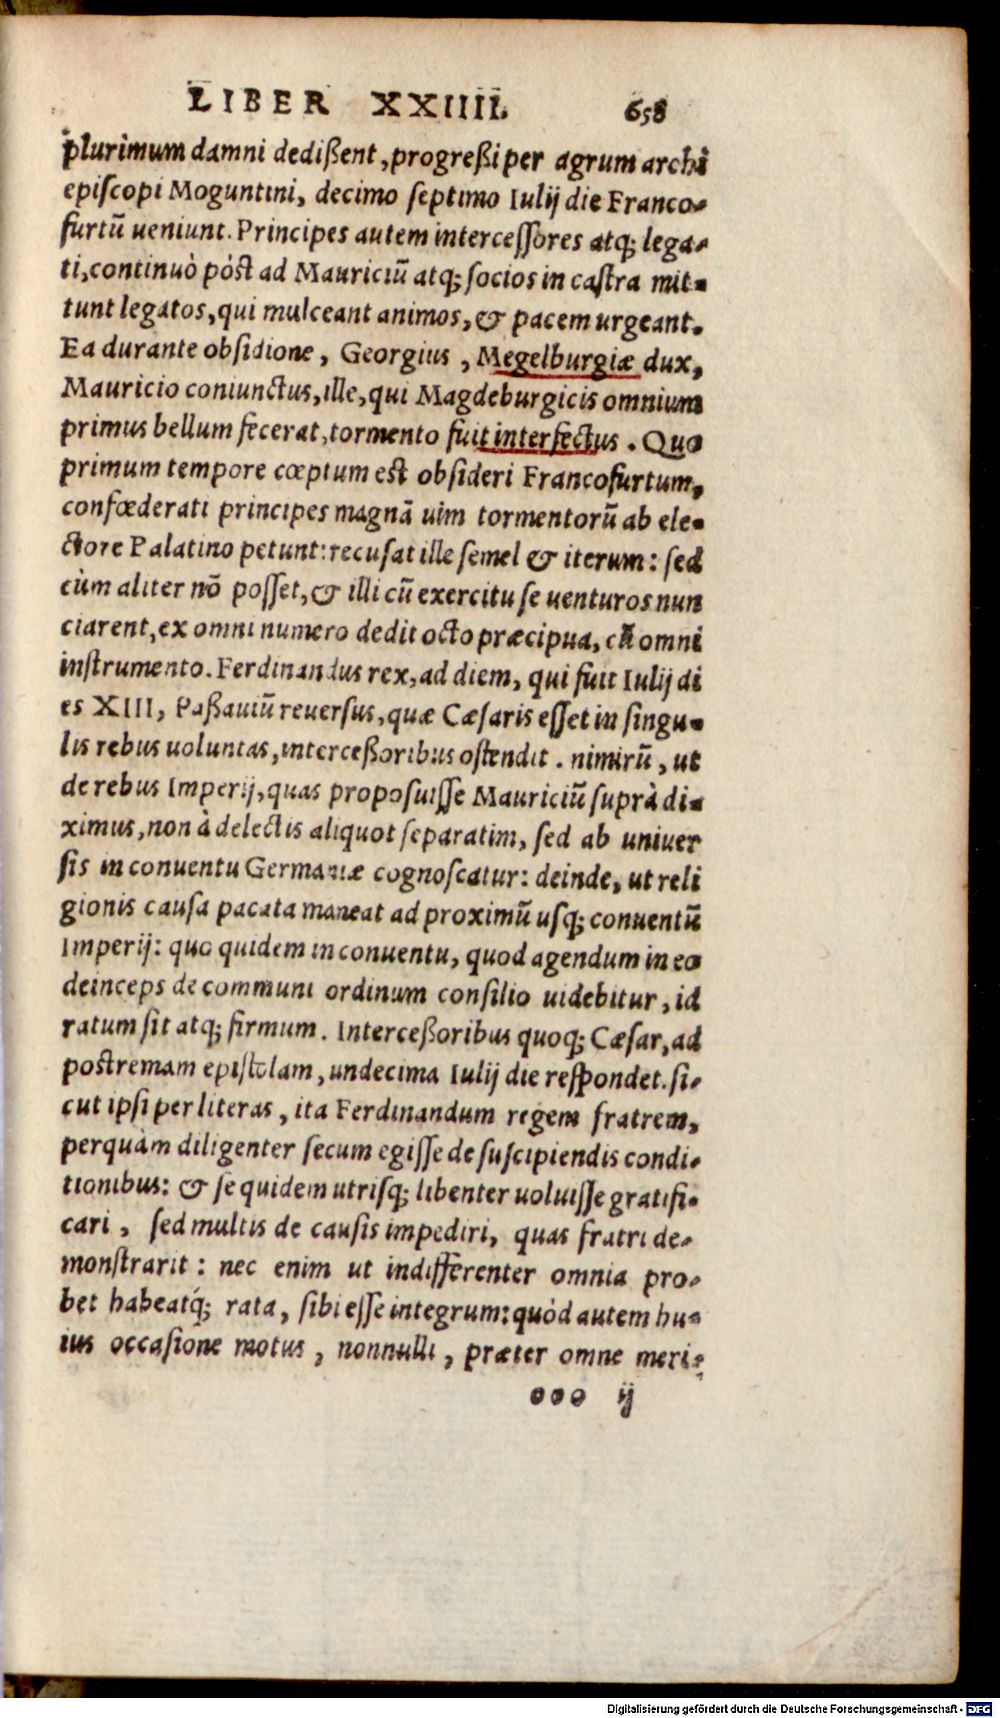 LIBER XXIIII. 658
plurimum damni dedißent, progreßi per agrum archi
episcopi Moguntini, decimo septimo Iulij die Franco-
furtū ueniunt. Principes autem intercessores atq; lega-
ti, continuò póst ad Mauriciū atq; socios in castra mit-
tunt legatos, qui mulceant animos, & pacem urgeant.
Ea durante obsidione, Georgius, Megelburgiæ dux,
Mauricio coniunctus, ille, qui Magdeburgicis omnium
primus bellum fecerat, tormento fuit interfectus. Quo
primum tempore cœptum est obsideri Francofurtum,
confœderati principes magnā uim tormentorū ab ele-
ctore Palatino petunt: recusat ille semel & iterum: sed
cùm aliter nō posset, & illi cū exercitu se uenturos nun
ciarent, ex omni numero dedit octo præcipua, cū omni
instrumento. Ferdinandus rex, ad diem, qui fuit Iulij di
es XIII, Paßauiū reuersus, quæ Cæsaris esset in singu-
lis rebus uoluntas, interceßoribus ostendit. nimirū, ut
de rebus Imperij, quas proposuisse Mauriciū suprà di-
ximus, non à delectis aliquot separatim, sed ab uniuer
sis in conuentu Germaniæ cognoscatur: deinde, ut reli
gionis causa pacata maneat ad proximū usq; conuentū
Imperij: quo quidem in conuentu, quod agendum in eo
deinceps de communi ordinum consilio uidebitur, id
ratum sit atq; firmum. Interceßoribus quoq; Cæsar, ad
postremam epistolam, undecima Iulij die respondet. si-
cut ipsi per literas, ita Ferdinandum regem fratrem,
perquàm diligenter secum egisse de suscipiendis condi-
tionibus: & se quidem utrisq; libenter uoluisse gratifi-
cari, sed multis de causis impediri, quas fratri de-
monstrarit: nec enim ut indifferenter omnia pro-
bet habeatq́; rata, sibi esse integrum: quòd autem hu-
ius occasione motus, nonnulli, præter omne meri-
ooo ij
Digitalisierung gefördert durch die Deutsche Forschungsgemeinschaft - DFG